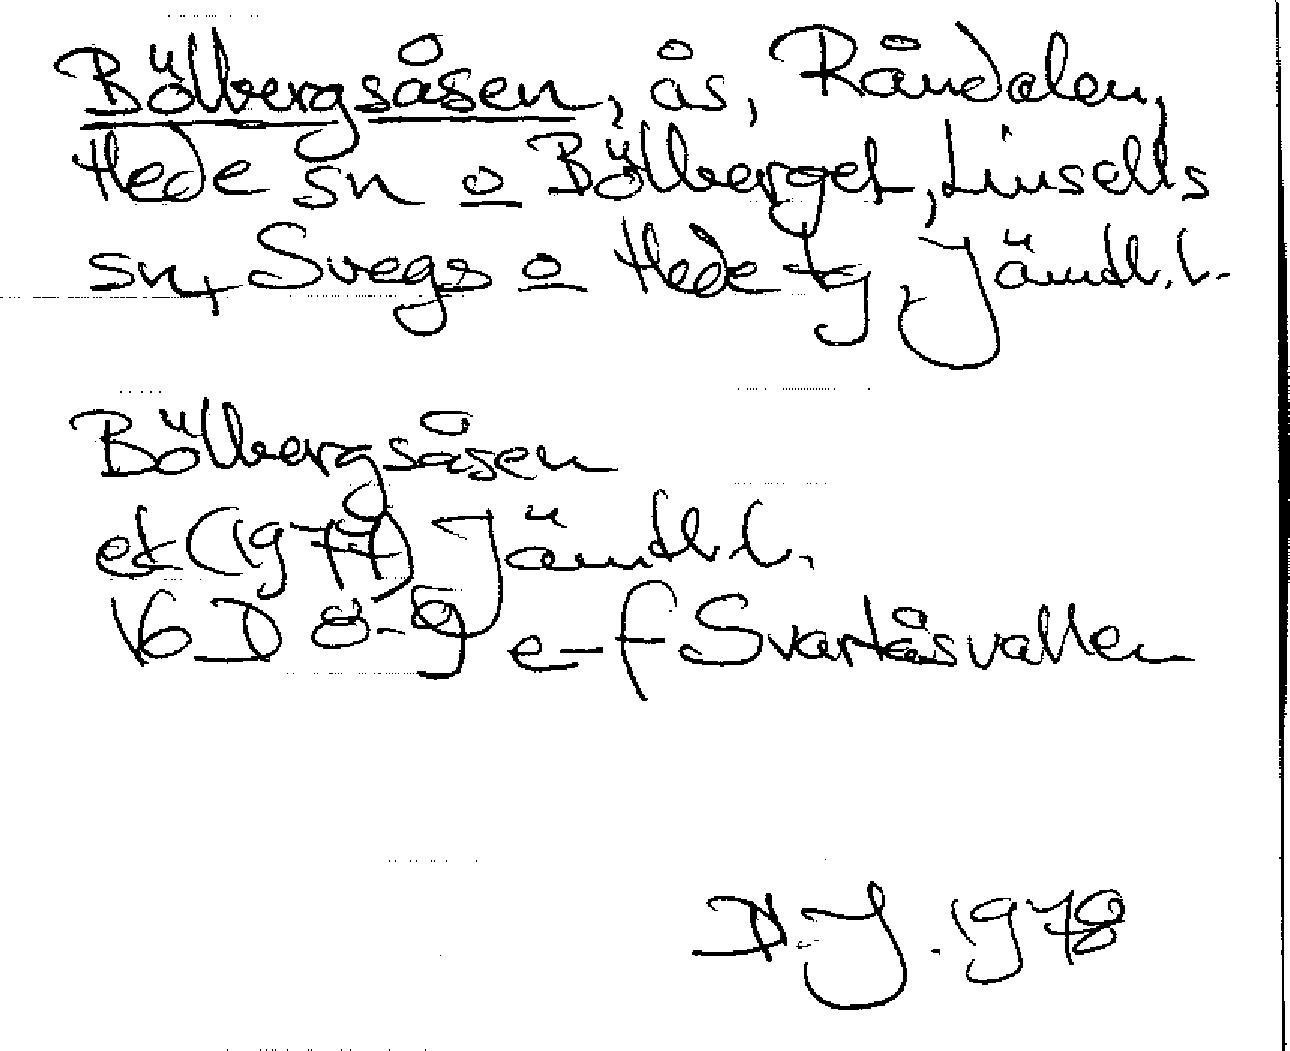 Bölbergsåsen, ås, Råndalen,
Hede sn o Bölberget, Linsells
sn, Svegs o Hede tg, Jämtl. l.
Bölbergsåsen
ek (1977) Jämtl. l.
16D 8-9 e-f Svartåsvallen
D.J. 1978